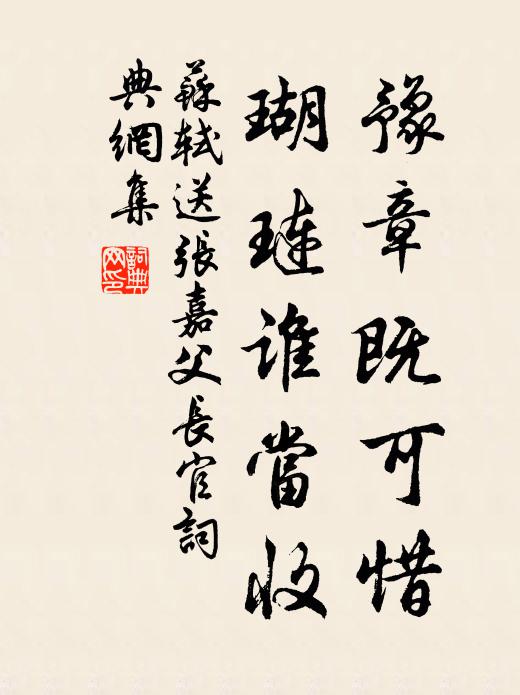 豫章既可惜
瑚璉誰當收
蘇軾送張嘉父長官詞
典網集
詞典
网印